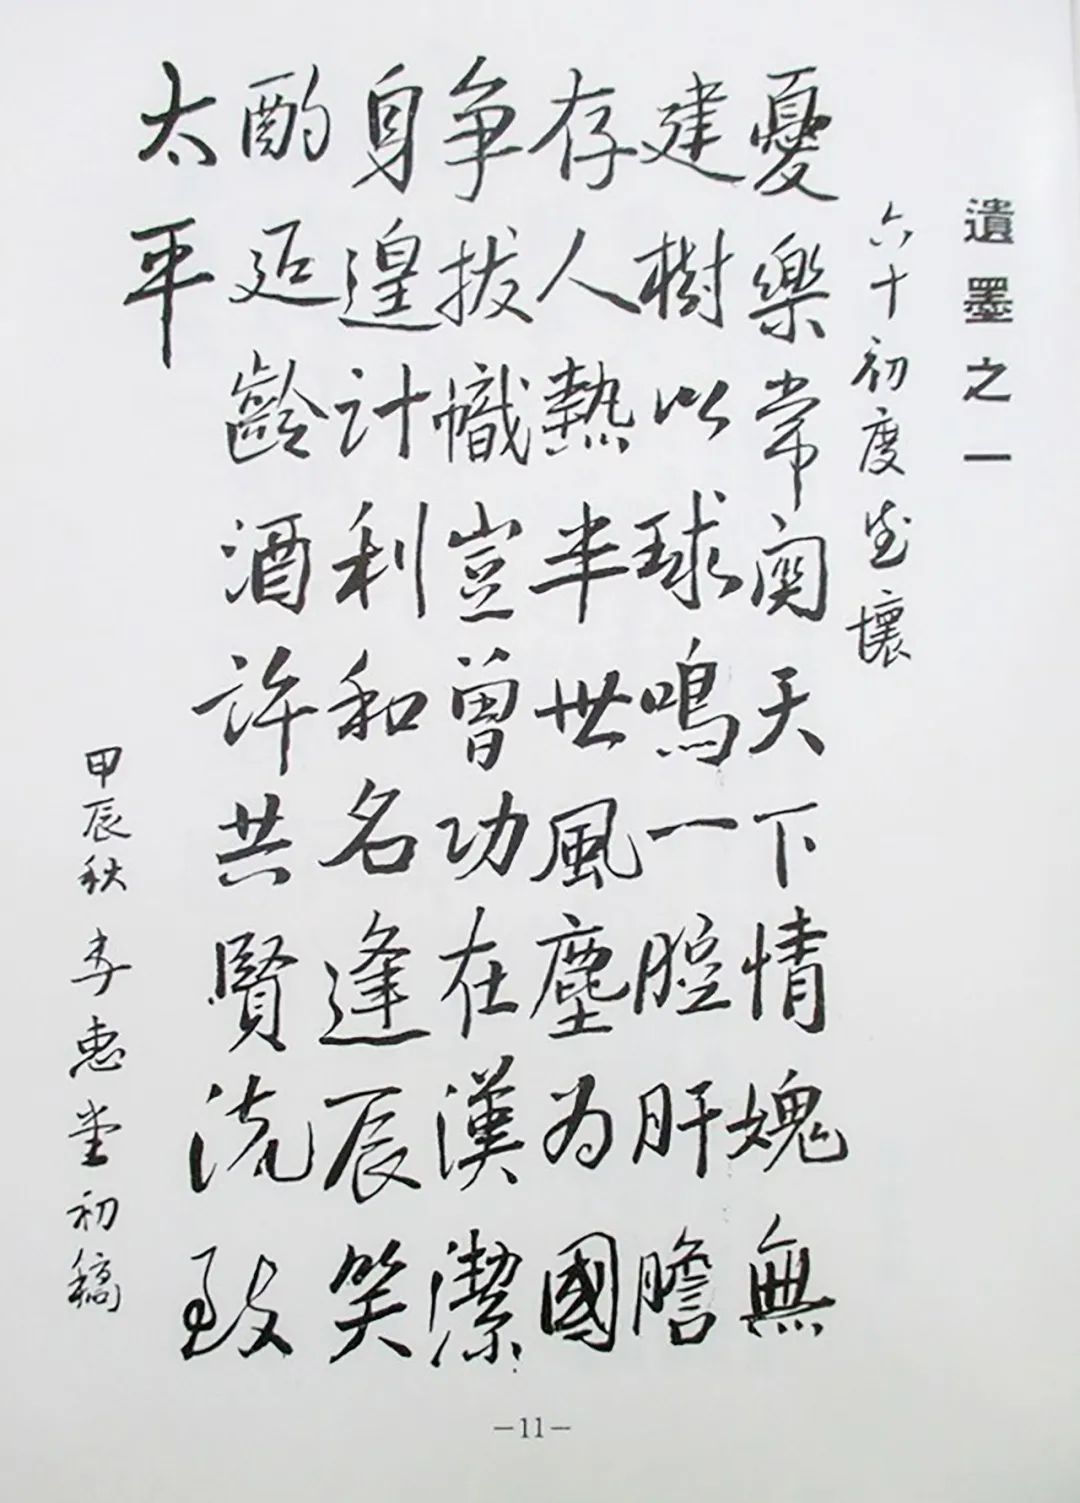 遺墨之一
六十初度書懷
憂樂常關天下情媿無
建樹以球鳴一腔肝膽
存人熱半世風塵為國
爭拔幟豈曾功在漢潔
身遑計利和名逢辰笑
酌延齡酒許共賢流致
太平
甲辰秋 李惠堂初稿
—11—